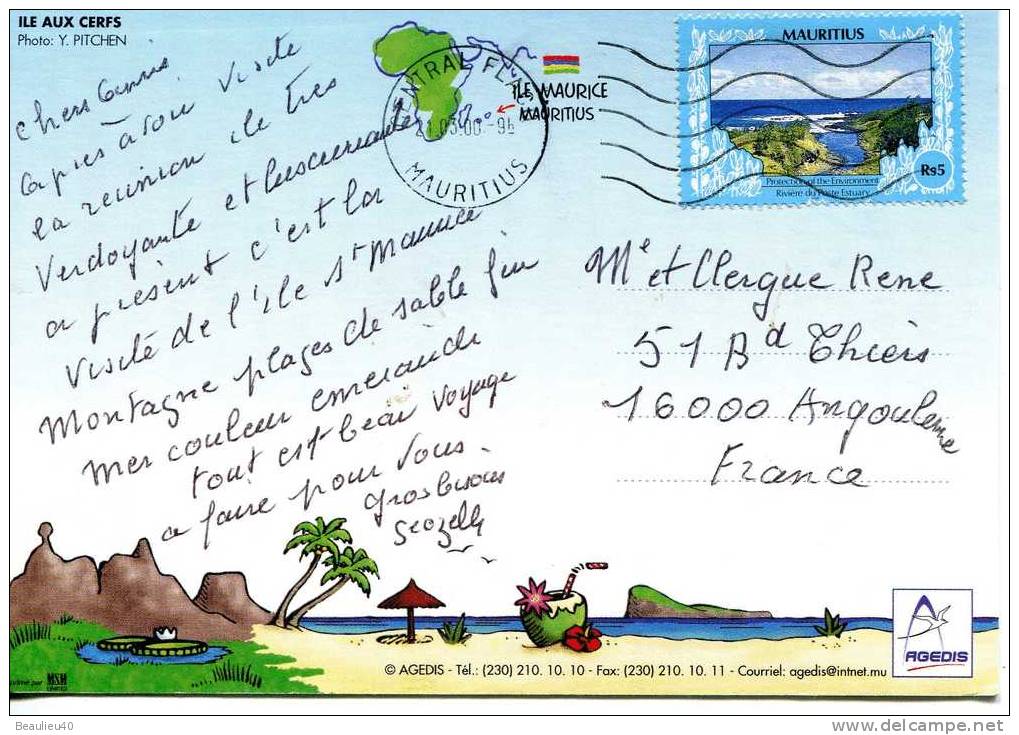 ILE AUX CERFS
Photo: Y. PITCHEN
chers
après avoir visité
la reunion île très
verdoyante et luxuriante
a présent c'est la
visité de l'île St Maurice
Montagne plages de sable fin
mer couleur emeraude
tout est beau voyage
a faire pour vous.
Gros bisous
CENTRAL FL
MAURITIUS
ILE MAURICE
MAURITIUS
MAURITIUS
Protection of the Environment
Rivière du Poste Estuary
Rs5
Mr et Clergue Rene
51 Bd Thiers
16000 Angouleme
France
AGEDIS
© AGEDIS - Tél.: (230) 210. 10. 10 - Fax: (230) 210. 10. 11 - Courriel: agedis@intnet.mu
MSM
LIMITED
Beaulieu40
www.delcampe.net